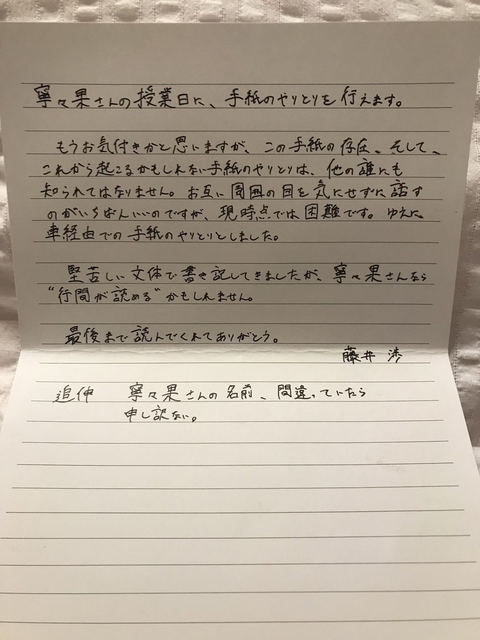 寧々果さんの授業日に、手紙のやりとりを行えます。
もうお気付きかと思いますが、この手紙の存在、そして、
これから起こるかもしれない手紙のやりとりは、他の誰にも
知られてはなりません。お互い周囲の目を気にせずに話す
のがいちばんいいのですが、現時点では困難です。ゆえに
車経由での手紙のやりとりとしました。
堅苦しい文体で書き記してきましたが、寧々果さんなら
“行間が読める”かもしれません。
最後まで読んでくれてありがとう。
藤井 渉
追伸 寧々果さんの名前、間違っていたら
申し訳ない。